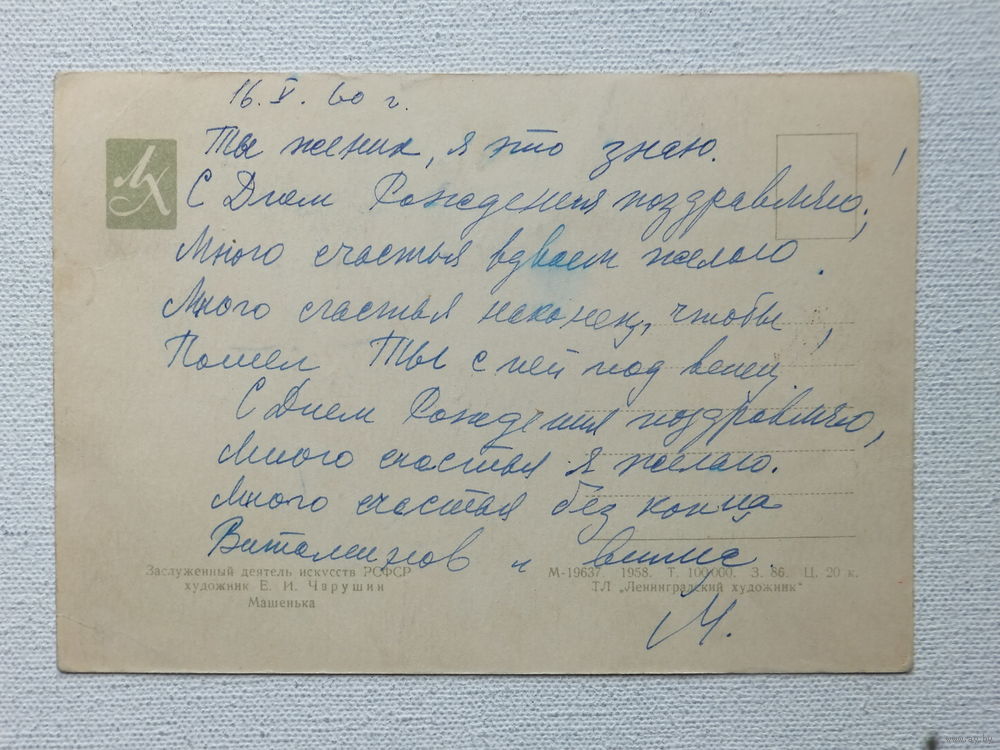 16. V. 60 г.
Ты жених, я это знаю.
С Днем Рождения поздравляю!
Много счастья вдвоем желаю.
Много счастья наконец, чтобы,
Пошел Ты с ней под венец.
С Днем Рождения поздравляю,
Много счастья я желаю.
Много счастья без конца
Витаминов и винца
М.
ЛХ
Заслуженный деятель искусств РСФСР
художник Е. И. Чарушин
Машенька
М-19637. 1958. Т. 100.000. З. 86. Ц. 20 к.
ТЛ „Ленинградский художник“
www.ay.by